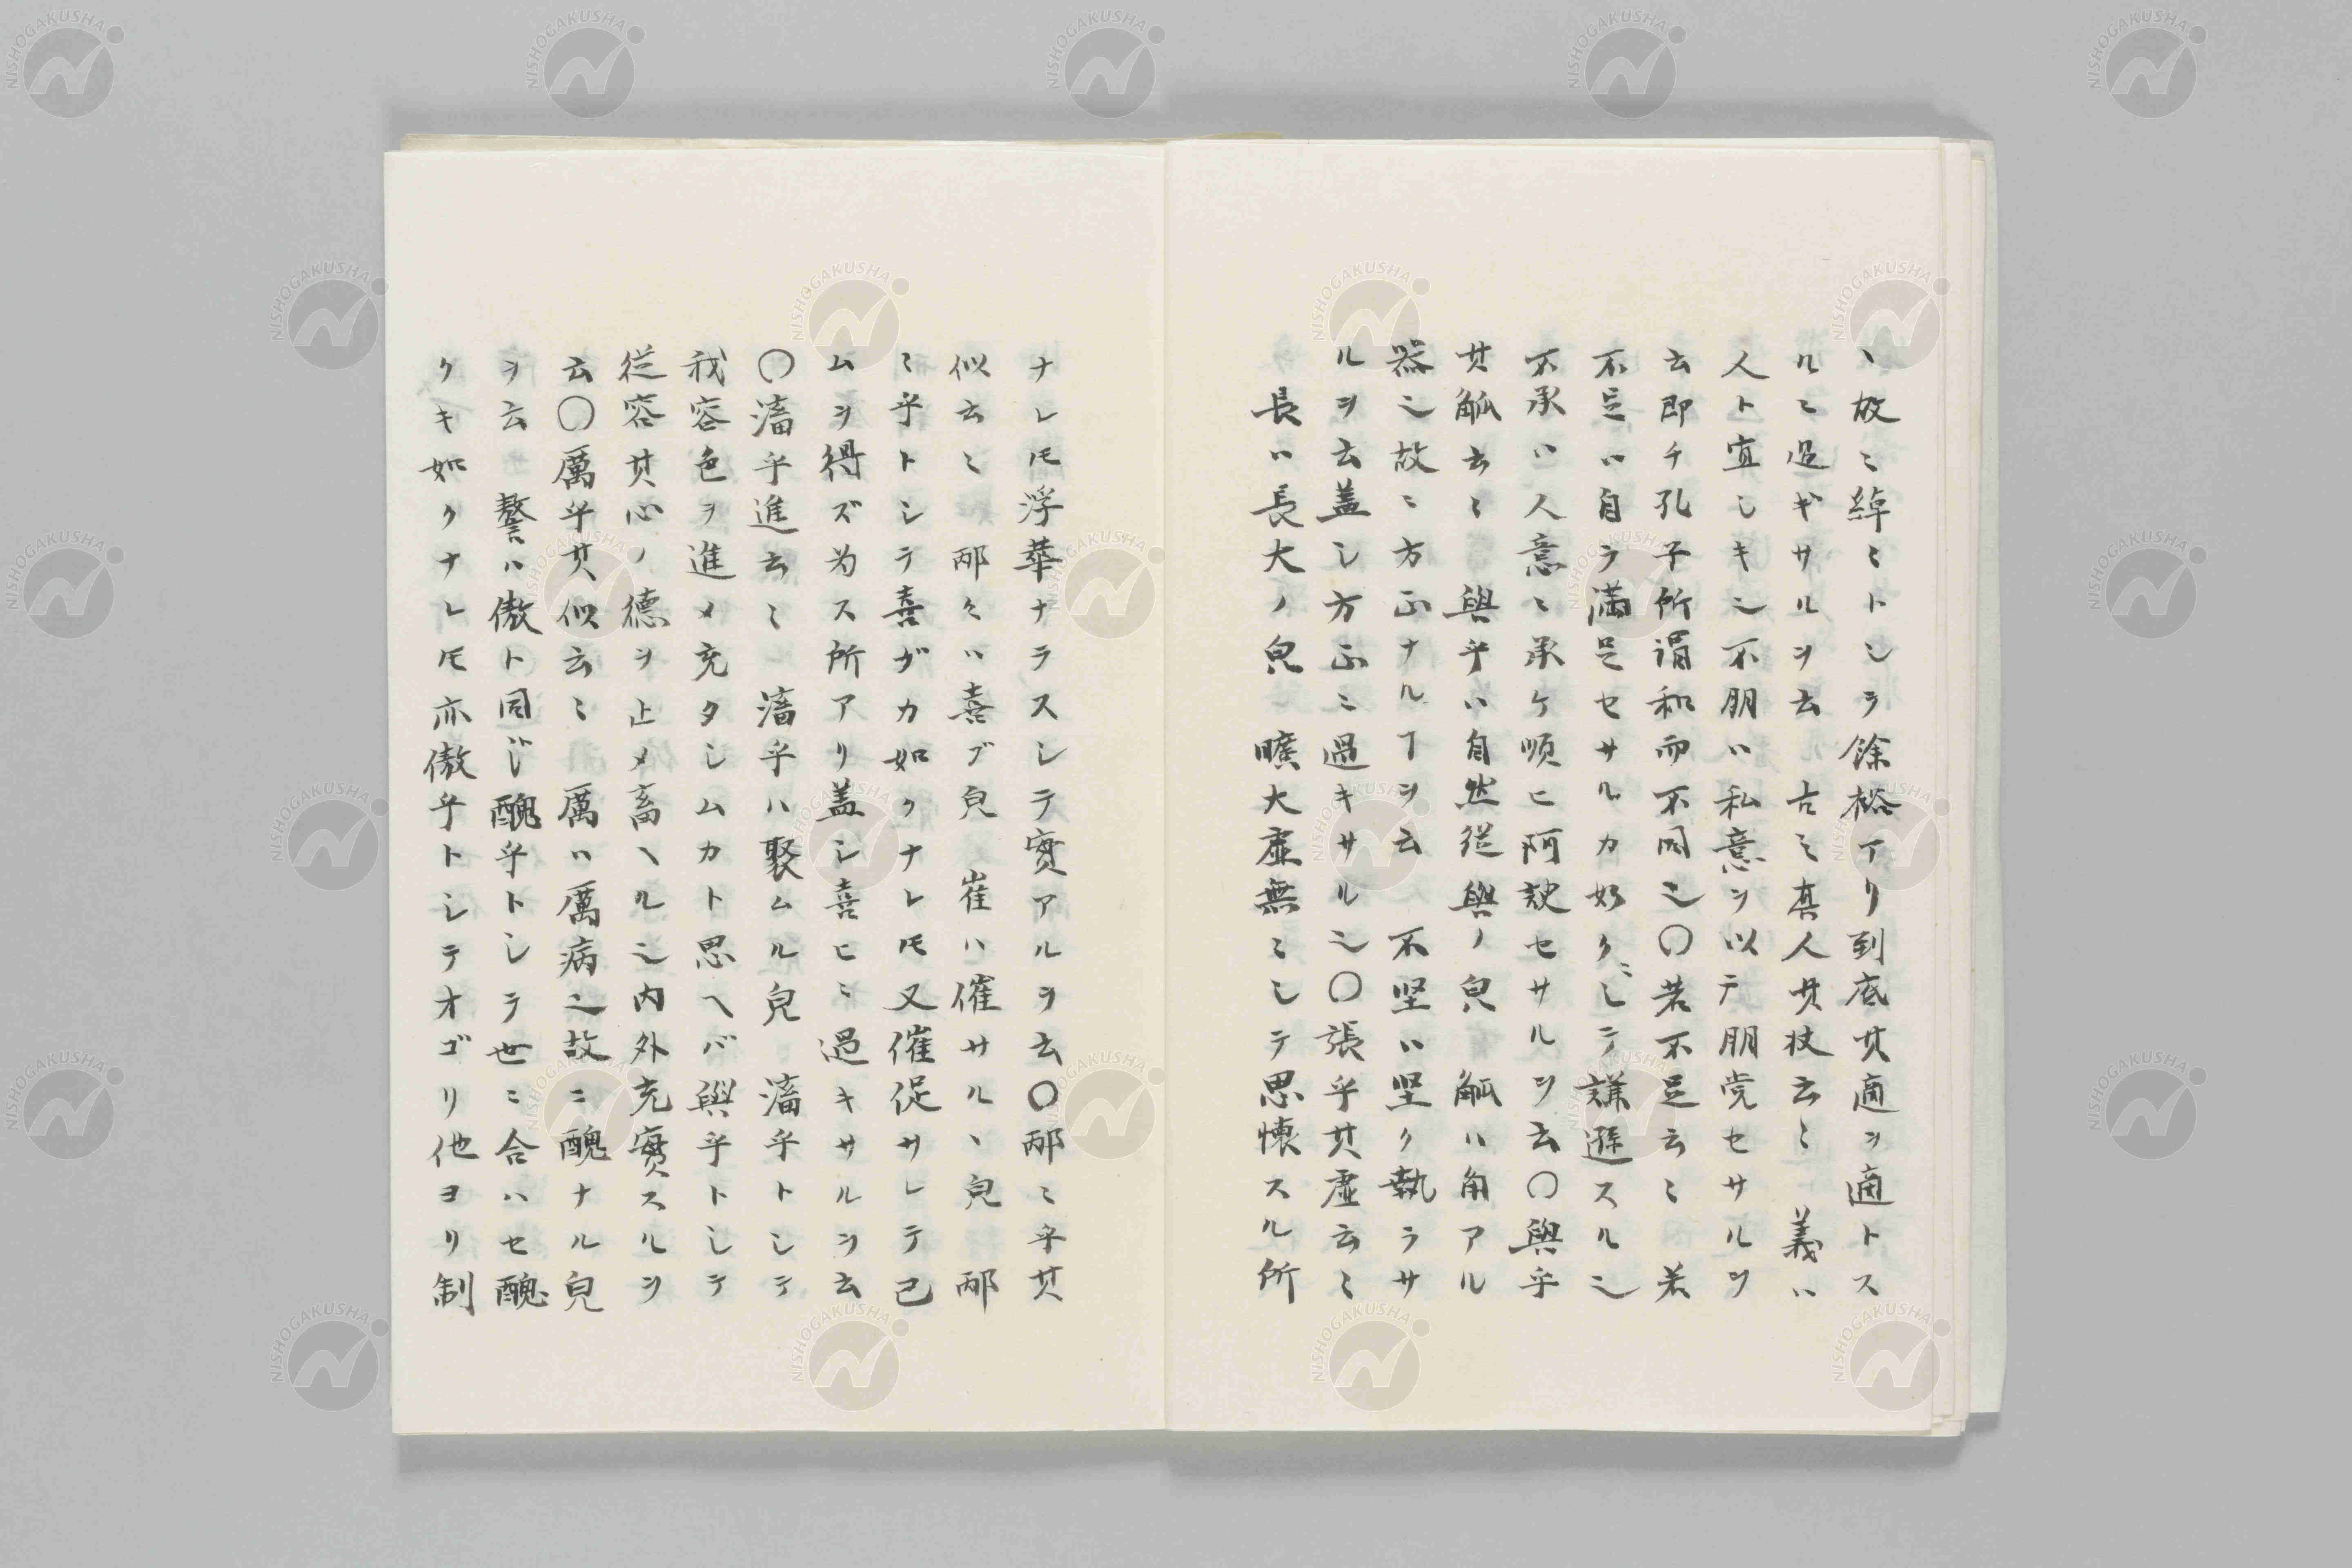 ヽ故ミ綽ミトシテ餘裕アリ到底其適ヲ適トス
ルミ過ギサルヲ云 古ミ真人其状云ミ 義ハ
人ト宜シキ也不朋ハ私意ヲ以テ朋党セサルヲ
云即チ孔子所謂和而不同也〇若不足云ミ 若
不足ハ自ラ満足セサルカ如クニシテ謙遜スル也
不承ハ人意ミ承ケ順ヒ阿諛セサルヲ云〇與乎
其觚云ミ 與乎ハ自然従與ノ皃 觚ハ角アル
器也故ニ方正ナルヿヲ云 不堅ハ堅ク執ラサ
ルヲ云盖シ方正ミ過キサル也〇張乎其虚云ミ
長ハ長大ノ皃 曠大虚無ミシテ思懐スル所
ナレ𪜈浮華ナラスシテ實アルヲ云〇邴ミ乎其
似云ミ 邴々ハ喜ブ皃 崔ハ催サルヽ皃 邴
ミ乎トシテ喜ガカ如クナレ𪜈又催促サレテ已
ムヲ得ズ為ス所アリ盖シ喜ヒミ過キサルヲ云
〇滀乎進云ミ 滀乎ハ聚ムル皃 滀乎トシテ
我容色ヲ進メ充タシムカト思ヘバ與乎トシテ
従容其心ノ德ヲ止メ畜ヘル也内外充實スルヲ
云〇厲乎其似云ミ 厲ハ厲病也故ニ醜ナル皃
ヲ云 謷ハ傲ト同ジ醜乎トシテ世ニ合ハセ醜
クキ如クナレ𪜈亦傲乎トシテオゴリ他ヨリ制